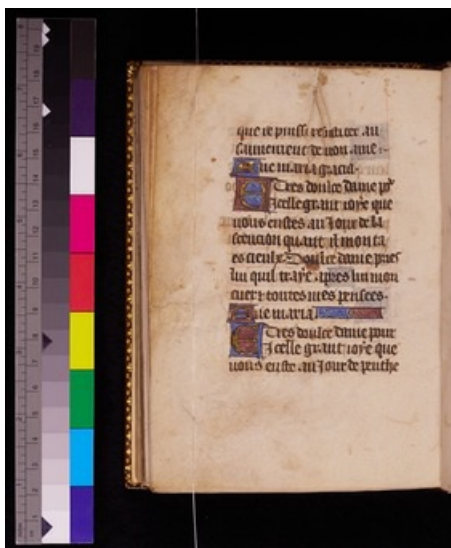 que ie puisse resister au
sauuement de mon ame.
Aue maria gracia.
E Tres doulce dame po
Icelle grant ioye que
vous eustes au Jour de la
scencion quant il monta
es cieulx. Doulce dame pries
lui quil traye apres lui mon
cuer et toutes mes pensees.
Aue maria
E Tres doulce dame pour
Icelle grant ioye que
vous euste au Jour de penthe